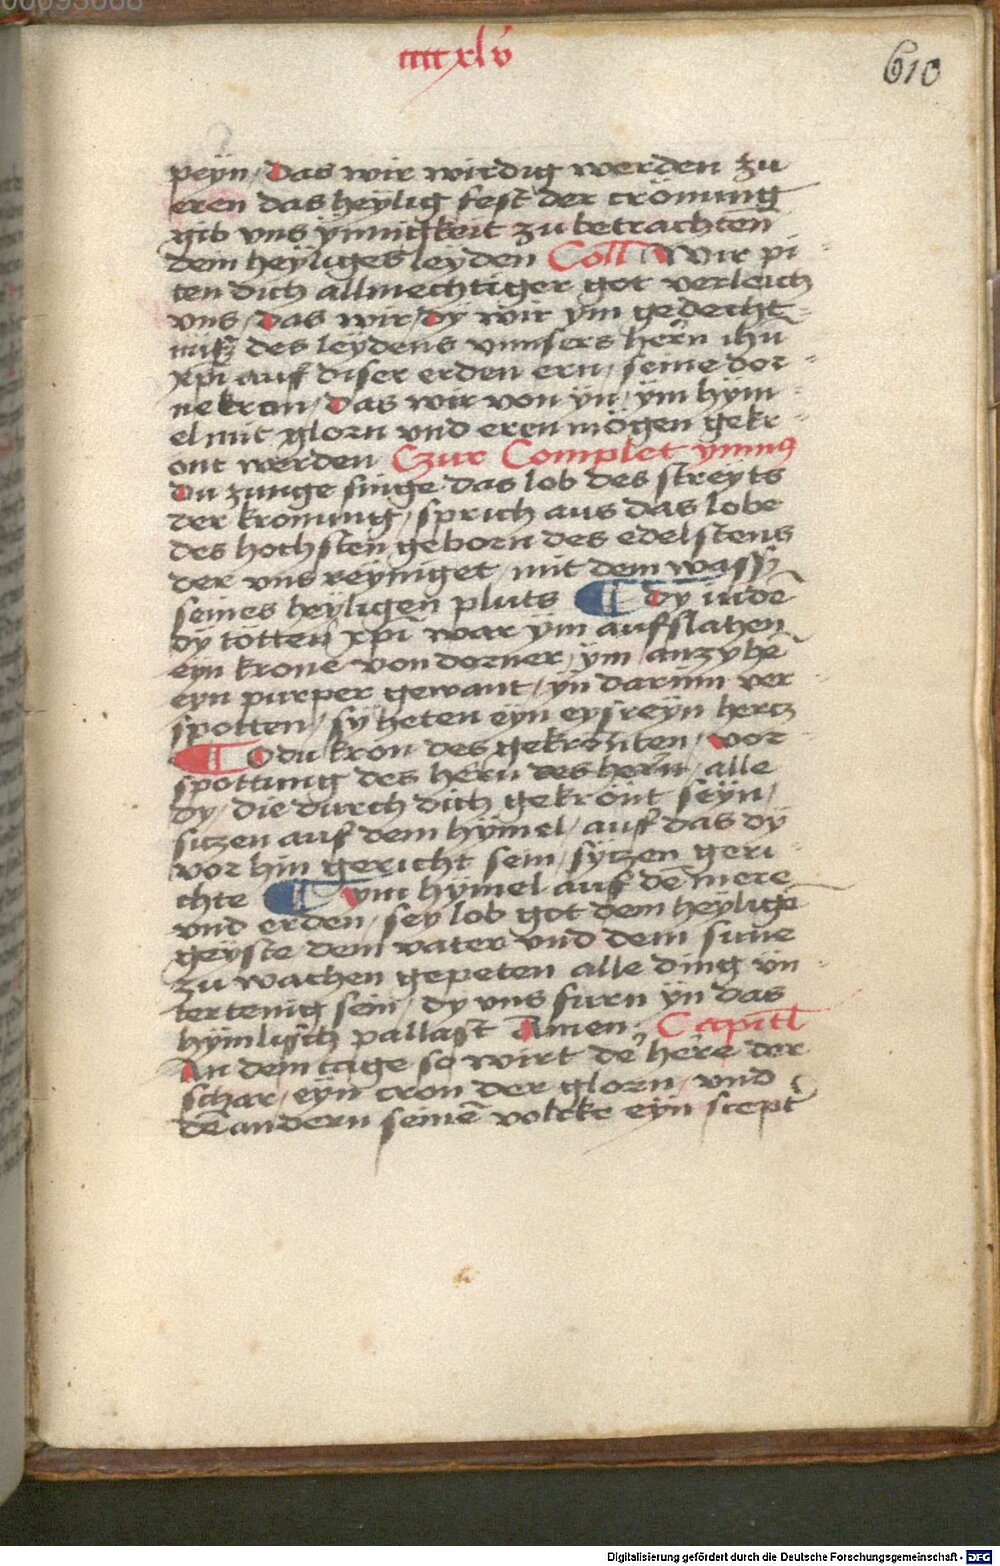 ccccxlv
610
peyn / Das wir wirdig werden zu
eren das heylig fest der cronung
gib vns ynnigkeit zu betrachten
dein heyliges leyden Coll Wir pi
ten dich allmechtiger got verleich
vns / das wir / dy wir ym gedecht
niß des leydens vnnsers hern ihu
xpi auf diser erden ern / seine dor
nekron / Das wir von yn / ym hym
el mit glorn vnd eren mögen gekr
ont werden Czur Complet ymnus
Du zunge singe das lob des streyts
der kronung / sprich aus das lobe
des hochsten geborn des edelstens
der vns reyniget / mit dem wassz
seines heyligen pluts ¶ dy iudē
dy totten xpi war ym aufslahen
eyn krone von dorner / ym anzyhē
eyn purper gewant / yn darum ver
spotten / sy heten eyn eysreyn hercz
¶ O du kron des gekrönten / vor
spottung des hern des hern / alle
dy / die durch dich gekrönt seyn /
siczen auf dem hymel / auf das dy
vor hin gericht sein / syczen geri
chte ¶ ym hymel auf dē mere
vnd erden / sey lob got dem heyligē
geyste dem vater vnd dem sune
zu wachen gepeten alle ding vn
tertenig sein / dy vns furn yn das
hymlisch pallast Amen / Capitl
An dem tage so wirt de' here der
schar / eyn cron der glorn / vnd
dē andern seinē volcke eyn scept'
Digitalisierung gefördert durch die Deutsche Forschungsgemeinschaft - DFG